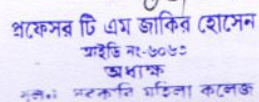 প্রফেসর টি এম জাকির হোসেন
আইডি নং-৬০৬১
অধ্যক্ষ
সরকারি মহিলা কলেজ